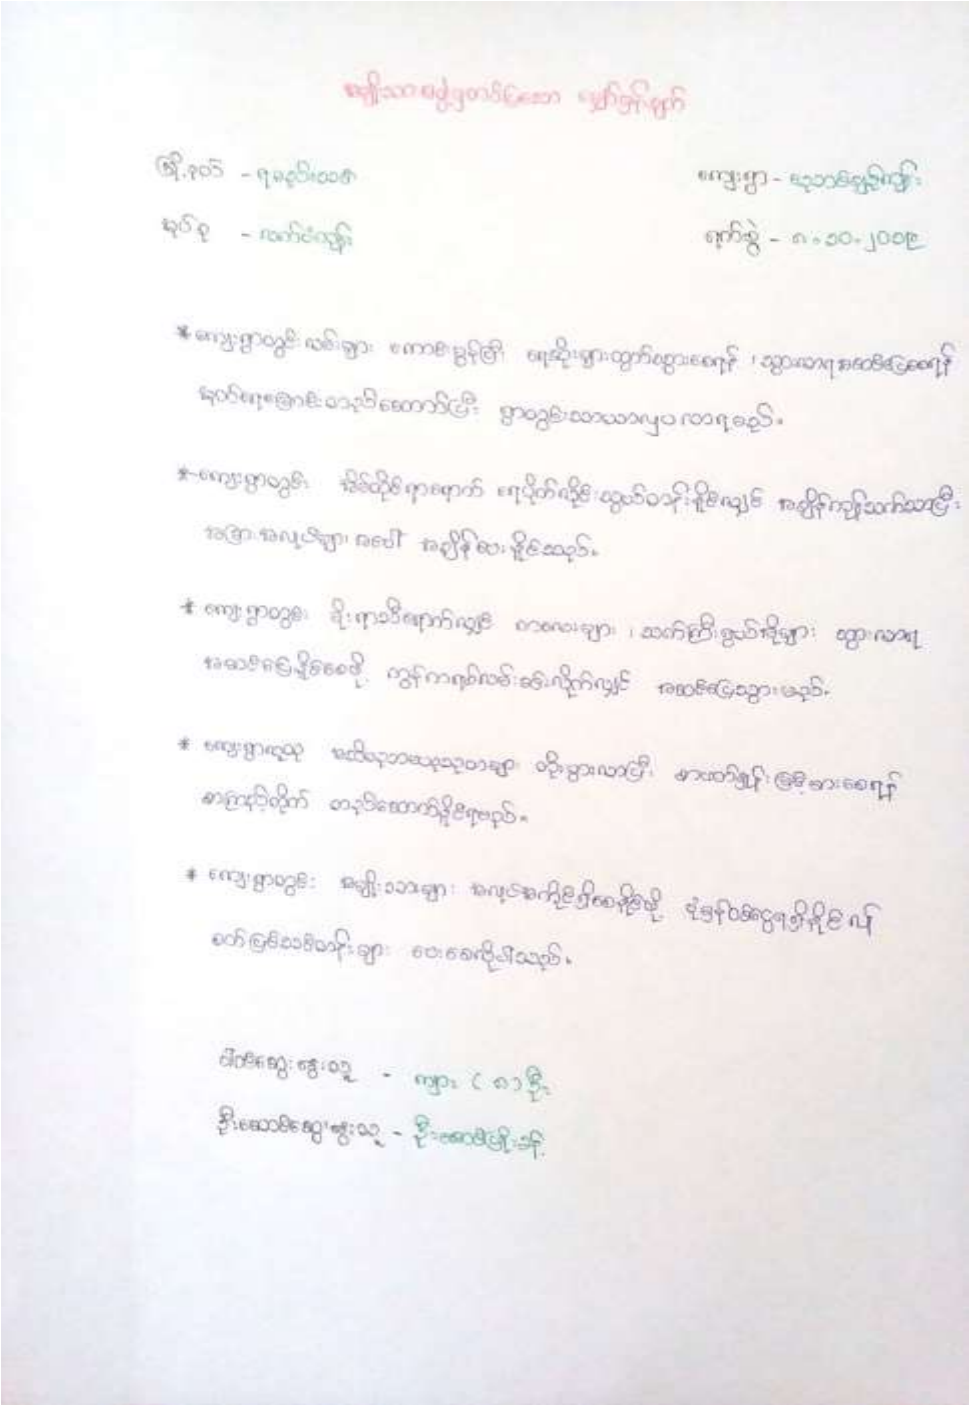 အမျိုးသားအဖွဲ့မှတင်ပြသော မျှော်မှန်းချက်
မြို့နယ် - ရမည်းသင်း
ကျေးရွာ -
အုပ်စု - လက်ပံကျွန်း
ရက်စွဲ - ၈.၁၀.၂၀၁၉
* ကျေးရွာတွင်း လမ်းများ ကောင်းမွန်ပြီး ရေဆိုးများထွက်သွားစေရန် ၊ သွားလာရအဆင်ပြေစေရန်
အုတ်ရေမြောင်းတည်ဆောက်ပြီး ရွာတွင်းသာယာလှပလာရမည်။
* ကျေးရွာတွင်း အိမ်တိုင်ရာရောက် ရေပိုက်လိုင်းသွယ်တန်းနိုင်လျှင် အချိန်ကုန်သက်သာပြီး
အခြားအလုပ်များအပေါ် အချိန်ပေးနိုင်သည်။
* ကျေးရွာတွင်း မိုးရာသီရောက်လျှင် ကလေးများ ၊ သက်ကြီးရွယ်အိုများ သွားလာရ
အဆင်ပြေနိုင်စေဖို့ ကွန်ကရစ်လမ်းခင်းလိုက်လျှင် အဆင်ပြေသွားမည်။
* ကျေးရွာလူထု အသိပညာဗဟုသုတများ တိုးပွားလာပြီး စာဖတ်ရှိန်မြင့်မားစေရန်
စာကြည့်တိုက် တည်ဆောက်နိုင်ရမည်။
* ကျေးရွာတွင်း အမျိုးသားများ အလုပ်အကိုင်ရှိစေနိုင်ဖို့ ပုံမှန်ဝင်ငွေရရှိနိုင်မည့်
စက်ပြင်သင်တန်းများ ပေးစေလိုပါသည်။
ပါဝင်ဆွေးနွေးသူ - ကျား ( ၈ ) ဦး
ဦးဆောင်ဆွေးနွေးသူ - ဦးအောင်မြိုးခန့်